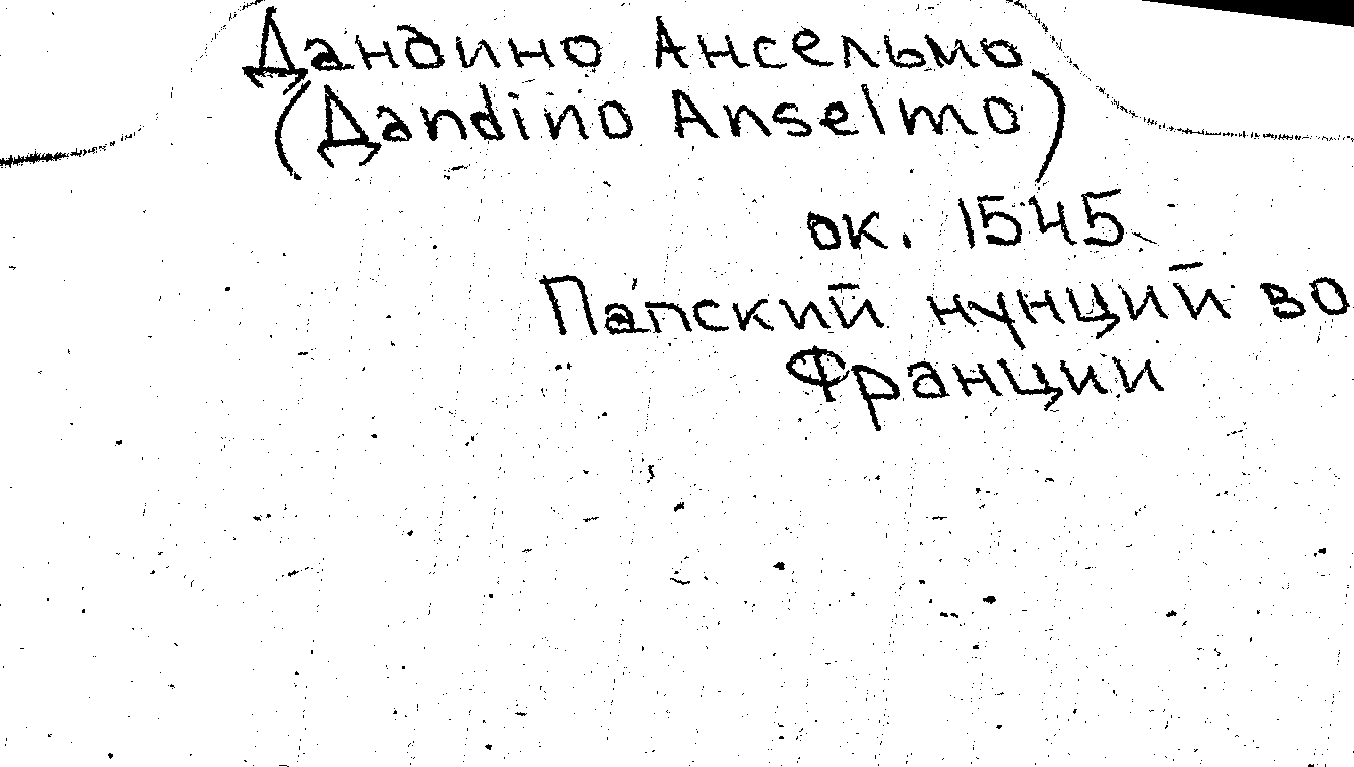 Дандино Ансельмо
(Дandino Anselmo)
ок. 1545
Папский нунций во
Франции